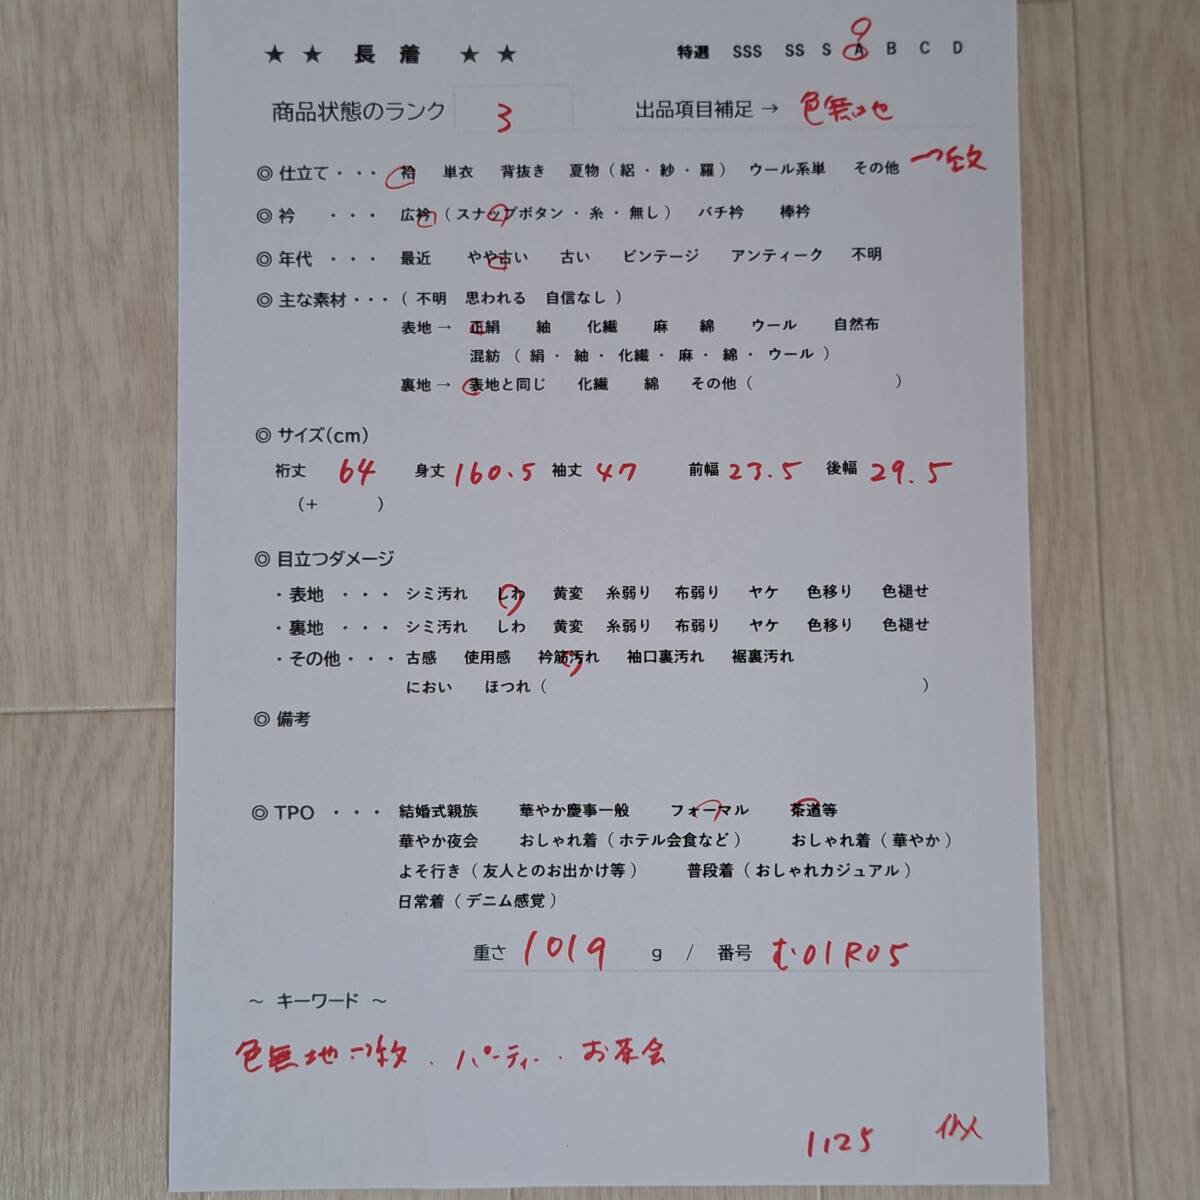 ★ ★ 長 着 ★ ★ 特選 SSS SS S A B C D
商品状態のランク 3 出品項目補足 → 色無地
◎ 仕立て・・・ 袷 単衣 背抜き 夏物(絽・紗・羅) ウール系単 その他 一つ紋
◎ 衿 ・・・ 広衿(スナップボタン・糸・無し) バチ衿 棒衿
◎ 年代 ・・・ 最近 やや古い 古い ビンテージ アンティーク 不明
◎ 主な素材・・・(不明 思われる 自信なし)
表地→ 正絹 紬 化繊 麻 綿 ウール 自然布
混紡(絹・紬・化繊・麻・綿・ウール)
裏地→ 表地と同じ 化繊 綿 その他( )
◎ サイズ(cm)
裄丈 64 身丈 160.5 袖丈 47 前幅 23.5 後幅 29.5
(+ )
◎ 目立つダメージ
・表地 ・・・ シミ汚れ しわ 黄変 糸弱り 布弱り ヤケ 色移り 色褪せ
・裏地 ・・・ シミ汚れ しわ 黄変 糸弱り 布弱り ヤケ 色移り 色褪せ
・その他・・・ 古感 使用感 衿筋汚れ 袖口裏汚れ 裾裏汚れ
におい ほつれ( )
◎ 備考
◎ TPO ・・・ 結婚式親族 華やか慶事一般 フォーマル 茶道等
華やか夜会 おしゃれ着(ホテル会食など) おしゃれ着(華やか)
よそ行き(友人とのお出かけ等) 普段着(おしゃれカジュアル)
日常着(デニム感覚)
重さ 1019 g / 番号 む01R05
～ キーワード ～
色無地一つ紋・パーティー・お茶会
1125